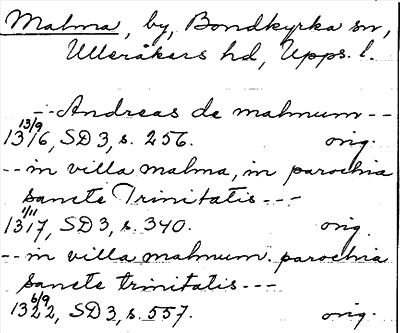 Malma, by, Bondkyrka sn,
Ulleråkers hd, Upps. l.
-- Andreas de malmum --
13/9
1316, SD 3, s. 256. orig.
-- in villa malma, in parochia
sancte Trinitatis ---
1/11
1317, SD 3, s. 340. orig.
-- in villa malmum. parochia
sancte trinitatis ---
6/9
1322, SD 3, s. 557. orig.